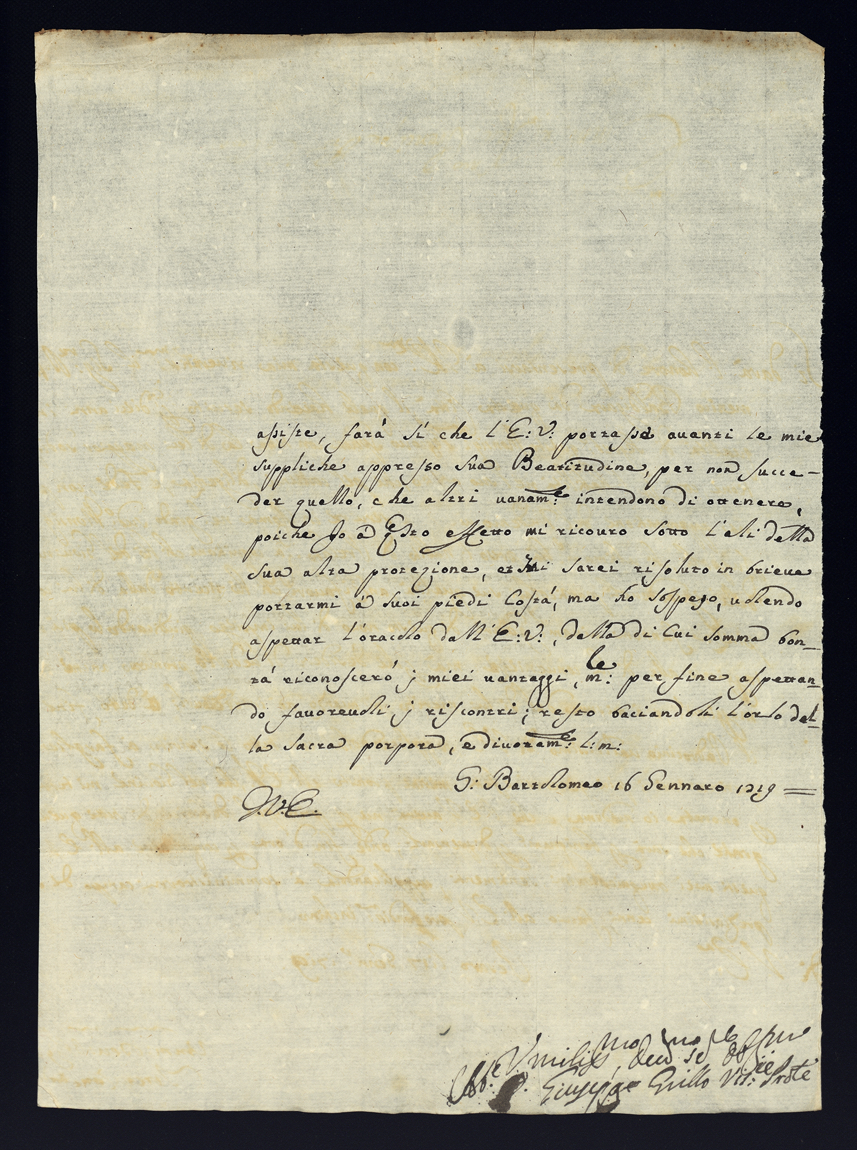 assiste, fará sí che l'E: V: portasse auanti le mie
suppliche appresso sua Beatitudine, per non succe-
der quello, che altri uanam.te intendono di ottenere,
poiche Jo á q.esto effetto mi ricouro sotto l'ali della
sua alta protezione, et mi sarei risoluto in brieue
portarmi á suoi piedi Costá, ma hò sospeso, uolendo
aspettar l'oracolo dall'E: V:, della di Cui somma bon-
tá riconosceró j miei uantaggi, m:le per fine aspettan-
do fauoreuoli j riscontri; resto baciandoli l'orlo del-
la sacra porpora, e diuotam.te l: m:
S: Bartolomeo 16 Gennaro 1719
D. V. E.
Vmiliss.mo, deu.mo se
D. Giuseppe Grillo Vic: